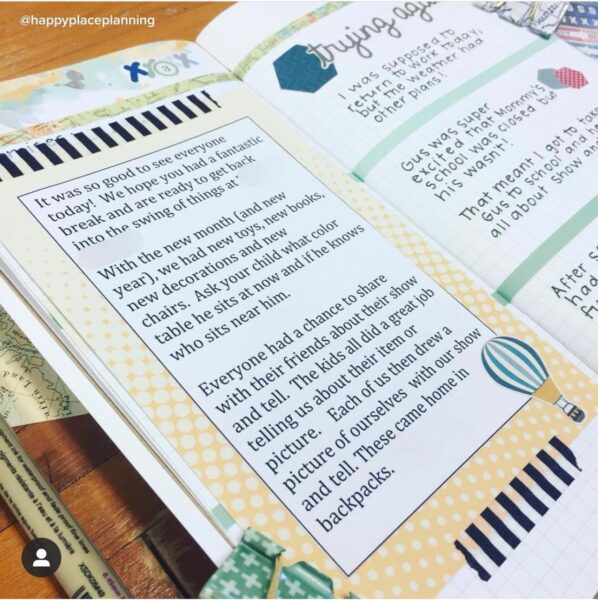 @happyplaceplanning
xox
It was so good to see everyone
today! We hope you had a fantastic
break and are ready to get back
into the swing of things at
With the new month (and new
year), we had new toys, new books,
new decorations and new
chairs. Ask your child what color
table he sits at now and if he knows
who sits near him.
Everyone had a chance to share
with their friends about their show
and tell. The kids all did a great job
telling us about their item or
picture. Each of us then drew a
picture of ourselves with our show
and tell. These came home in
backpacks.
trying
I was supposed to
return to work today,
but the weather had
other plans!
Gus was super
excited that Mommy's
school was closed but
his wasn't!
That meant I got to take
Gus to school and he
all about show and
After
had